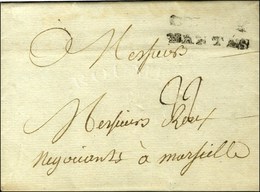 MANTES
Messieurs
Messieurs Roux
negotiants à marseille